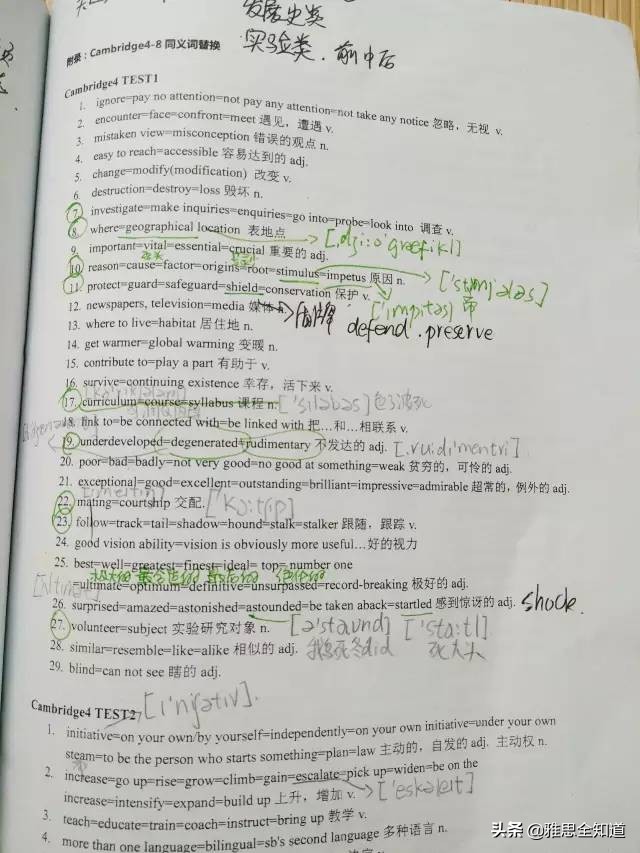 发展史类
实验类. 前中后
附录：Cambridge4-8 同义词替换
Cambridge4 TEST1
1. ignore=pay no attention=not pay any attention=not take any notice 忽略，无视 v.
2. encounter=face=confront=meet 遇见，遭遇 v.
3. mistaken view=misconception 错误的观点 n.
4. easy to reach=accessible 容易达到的 adj.
5. change=modify(modification) 改变 v.
6. destruction=destroy=loss 毁坏 n.
7. investigate=make inquiries=enquiries=go into=probe=look into 调查 v.
8. where=geographical location 表地点
[,dʒi:ə'græfikl]
9. important=vital=essential=crucial 重要的 adj.
10. reason=cause=factor=origins=root=stimulus=impetus 原因 n.
['stimjələs]
11. protect=guard=safeguard=shield=conservation 保护 v.
['impitəs]
12. newspapers, television=media 媒体 n.
defend.preserve
13. where to live=habitat 居住地 n.
14. get warmer=global warming 变暖 n.
15. contribute to=play a part 有助于 v.
16. survive=continuing existence 幸存，活下来 v.
17. curriculum=course=syllabus 课程 n.
['siləbəs]
18. link to=be connected with=be linked with 把…和…相联系 v.
19. underdeveloped=degenerated=rudimentary 不发达的 adj.
[.ru:di'mentri]
20. poor=bad=badly=not very good=no good at something=weak 贫穷的，可怜的 adj.
21. exceptional=good=excellent=outstanding=brilliant=impressive=admirable 超常的，例外的 adj.
22. mating=courtship 交配
['kɔ:tʃip]
23. follow=track=tail=shadow=hound=stalk=stalker 跟随，跟踪 v.
24. good vision ability=vision is obviously more useful…好的视力
25. best=well=greatest=finest=ideal= top=number one
=ultimate=optimum=definitive=unsurpassed=record-breaking 极好的 adj.
26. surprised=amazed=astonished=astounded=be taken aback=startled 感到惊讶的 adj.
shock.
27. volunteer=subject 实验研究对象 n.
[ə'staund] ['sta:tl]
28. similar=resemble=like=alike 相似的 adj.
死大头
29. blind=can not see 瞎的 adj.
Cambridge4 TEST2
[ɪ'nɪʃətɪv].
1. initiative=on your own/by yourself=independently=on your own initiative=under your own
steam=to be the person who starts something=plan=law 主动的，自发的 adj. 主动权 n.
2. increase=go up=rise=grow=climb=gain=escalate=pick up=widen=be on the
increase=intensify=expand=build up 上升，增加 v.
['eskəleit]
3. teach=educate=train=coach=instruct=bring up 教学 v.
4. more than one language=bilingual=sb's second language 多种语言 n.
头条 @雅思全知道